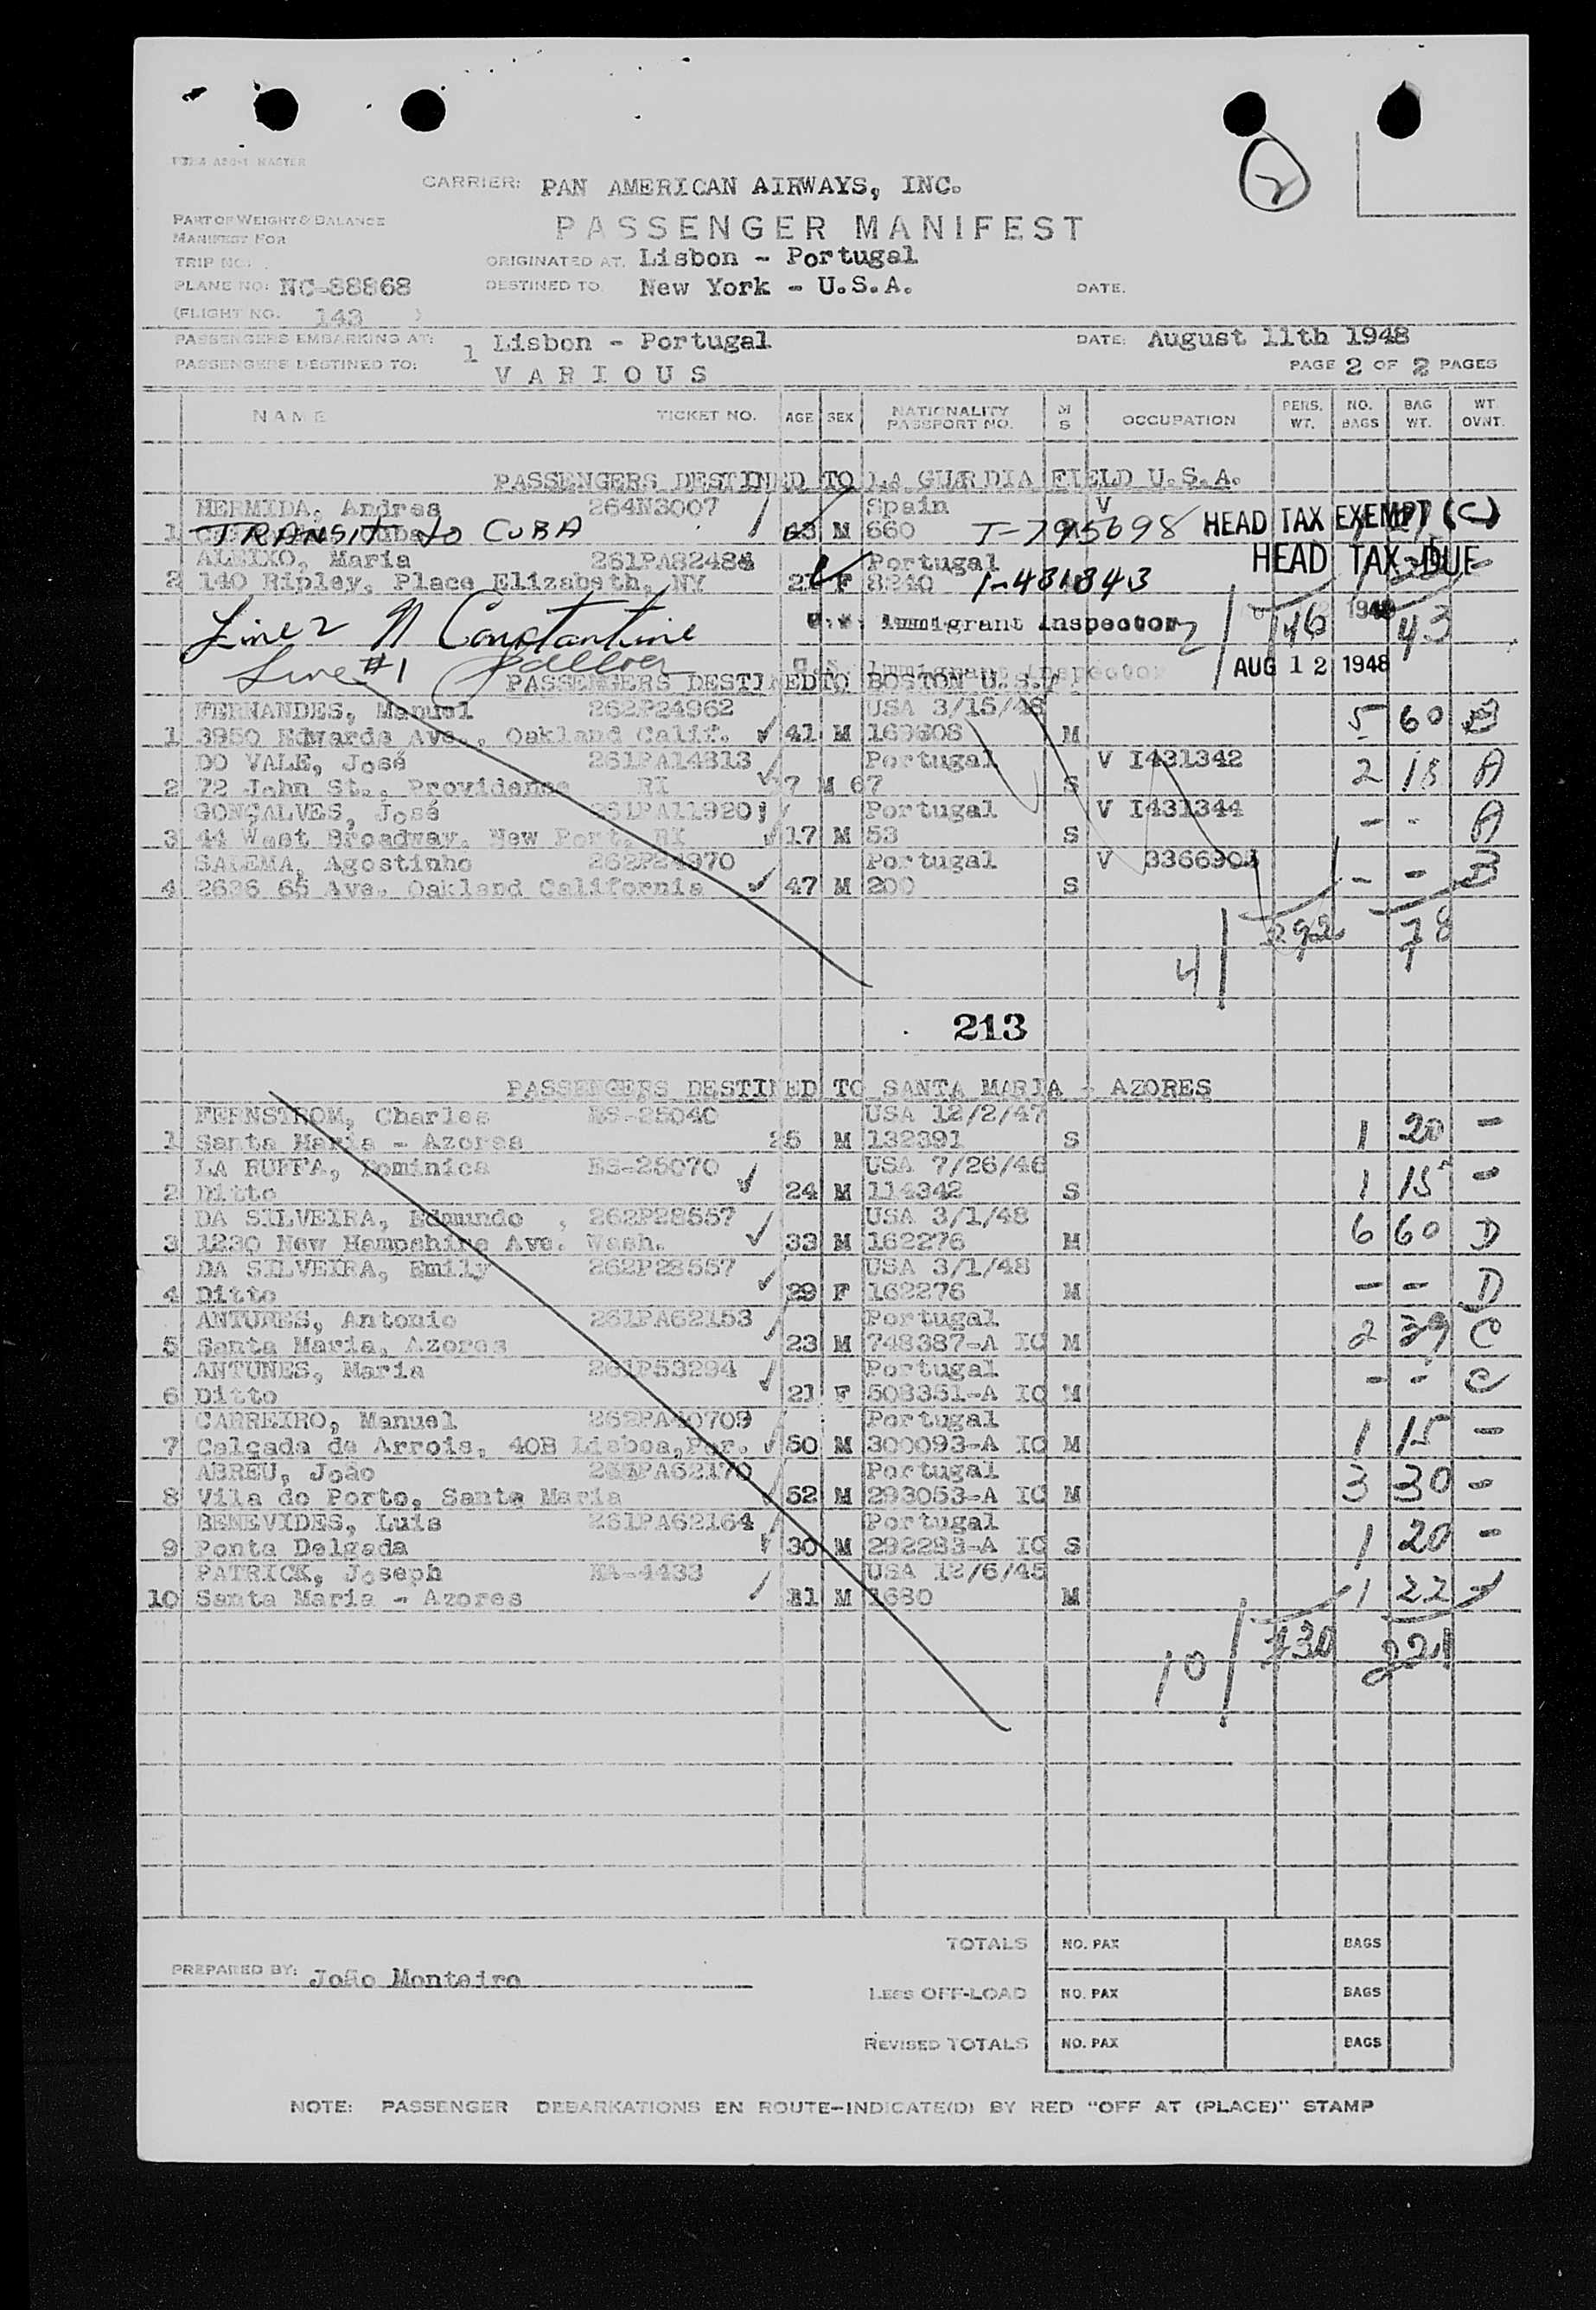 CARRIER: PAN AMERICAN AIRWAYS, INC.
2
PASSENGER MANIFEST
PART OF WEIGHT & BALANCE
MANIFEST FOR
TRIP NO.
ORIGINATED AT. Lisbon - Portugal
PLANE NO: NC-88868 DESTINED TO. New York - U.S.A. DATE.
(FLIGHT NO. 143 )
PASSENGERS EMBARKING AT: 1 Lisbon - Portugal DATE: August 11th 1948
PASSENGERS DESTINED TO: VARIOUS PAGE 2 OF 2 PAGES
NAME TICKET NO. AGE SEX NATIONALITY PASSPORT NO. M S OCCUPATION PERS. WT. NO. BAGS BAG WT. WT. OVNT.
PASSENGERS DESTINED TO LA GUARDIA FIELD U.S.A.
HERMIDA, Andres 264N3007 Spain V
1 TRANSIT to CUBA 63 M 660 T-795698 HEAD TAX EXEMPT (C)
ALEIXO, Maria 261PA82484 Portugal HEAD TAX DUE
2 140 Ripley, Place Elizabeth, NY 21 F 8240 I-481843
Line 2 N Constantine U.S. Immigrant Inspector 2 146 43
Line #1 U.S. Immigrant Inspector AUG 12 1948
PASSENGERS DESTINED TO BOSTON U.S.A.
FERNANDES, Manuel 262P24962 USA 3/15/48
1 3950 Edwards Ave., Oakland Calif. 41 M 169608 M 5 60 B
DO VALE, José 261PA14813 Portugal V I431342
2 72 John St., Providense RI 7 M 67 S 2 18 A
GONÇALVES, José 261PA11920 Portugal V I431344
3 44 West Broadway, New Port, RI 17 M 53 S - - A
SALEMA, Agostinho 262P24970 Portugal V 3366904
4 2636 65 Ave. Oakland California 47 M 200 S - - B
4 292 78
213
PASSENGERS DESTINED TO SANTA MARIA - AZORES
FERNSTROM, Charles ES-25040 USA 12/2/47
1 Santa Maria - Azores 25 M 132391 S 1 20 -
LA RUFFA, Dominica ES-25070 USA 7/26/46
2 Ditto 24 M 114342 S 1 15 -
DA SILVEIRA, Edmundo , 262P28557 USA 3/1/48
3 1230 New Hampshire Ave. Wash. 33 M 162276 M 6 60 D
DA SILVEIRA, Emily 262P28557 USA 3/1/48
4 Ditto 29 F 162276 M - - D
ANTUNES, Antonio 261PA62153 Portugal
5 Santa Maria, Azores 23 M 748387-A IC M 2 39 C
ANTUNES, Maria 261P53294 Portugal
6 Ditto 21 F 508351-A IC M - - C
CARREIRO, Manuel 262PA40709 Portugal
7 Calçada de Arrois, 40B Lisboa,Por. 50 M 300093-A IC M 1 15 -
ABREU, João 261PA62170 Portugal
8 Vila do Porto, Santa Maria 52 M 293053-A IC M 3 30 -
BENEVIDES, Luis 261PA62164 Portugal
9 Ponta Delgada 30 M 292283-A IC S 1 20 -
PATRICK, Joseph NA-4433 USA 12/6/45
10 Santa Maria - Azores M 1680 M 1 22 -
10 730 221
TOTALS NO. PAX BAGS
PREPARED BY: João Monteiro
LESS OFF-LOAD NO. PAX BAGS
REVISED TOTALS NO. PAX BAGS
NOTE: PASSENGER DEBARKATIONS EN ROUTE-INDICATE(D) BY RED "OFF AT (PLACE)" STAMP